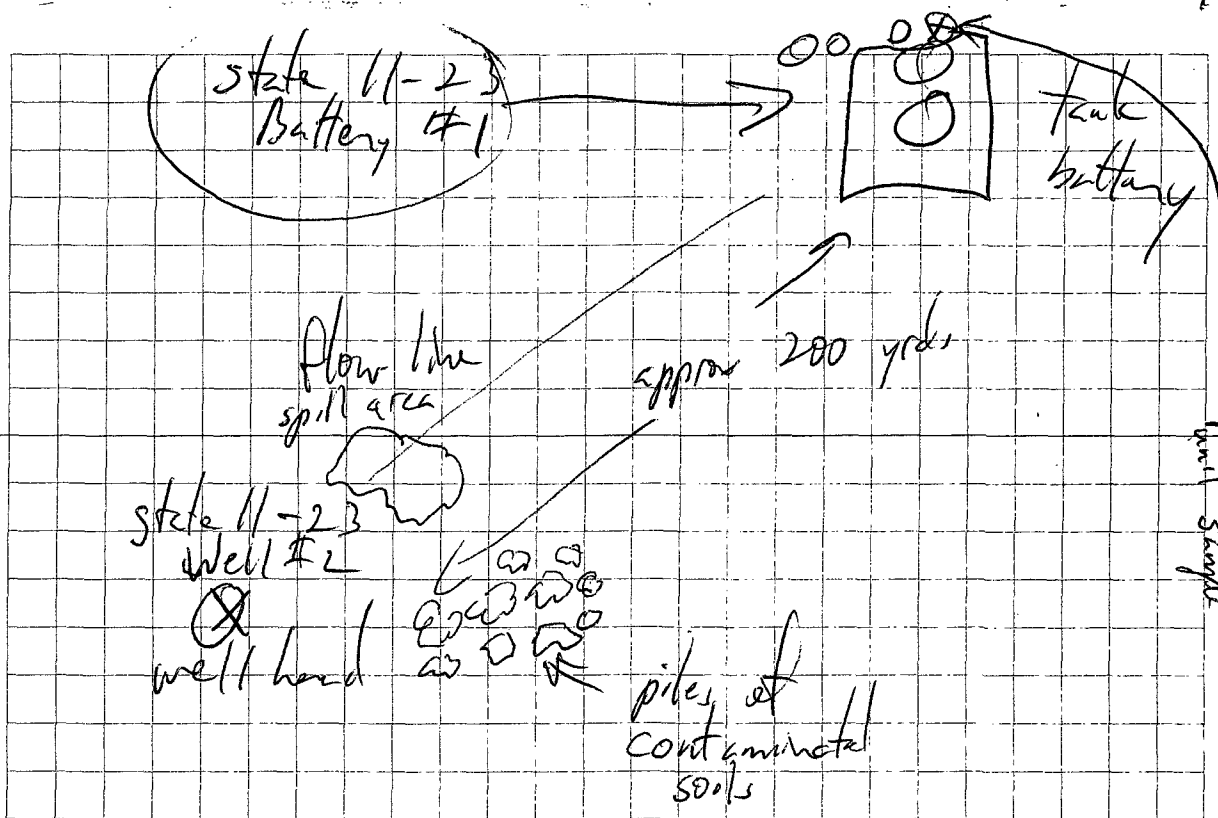 state 11-23
Battery #1
tank
battery
flow line
spill area
approx 200 yrds
state 11-23
well #2
well head
piles of
contaminated
soils
Sample